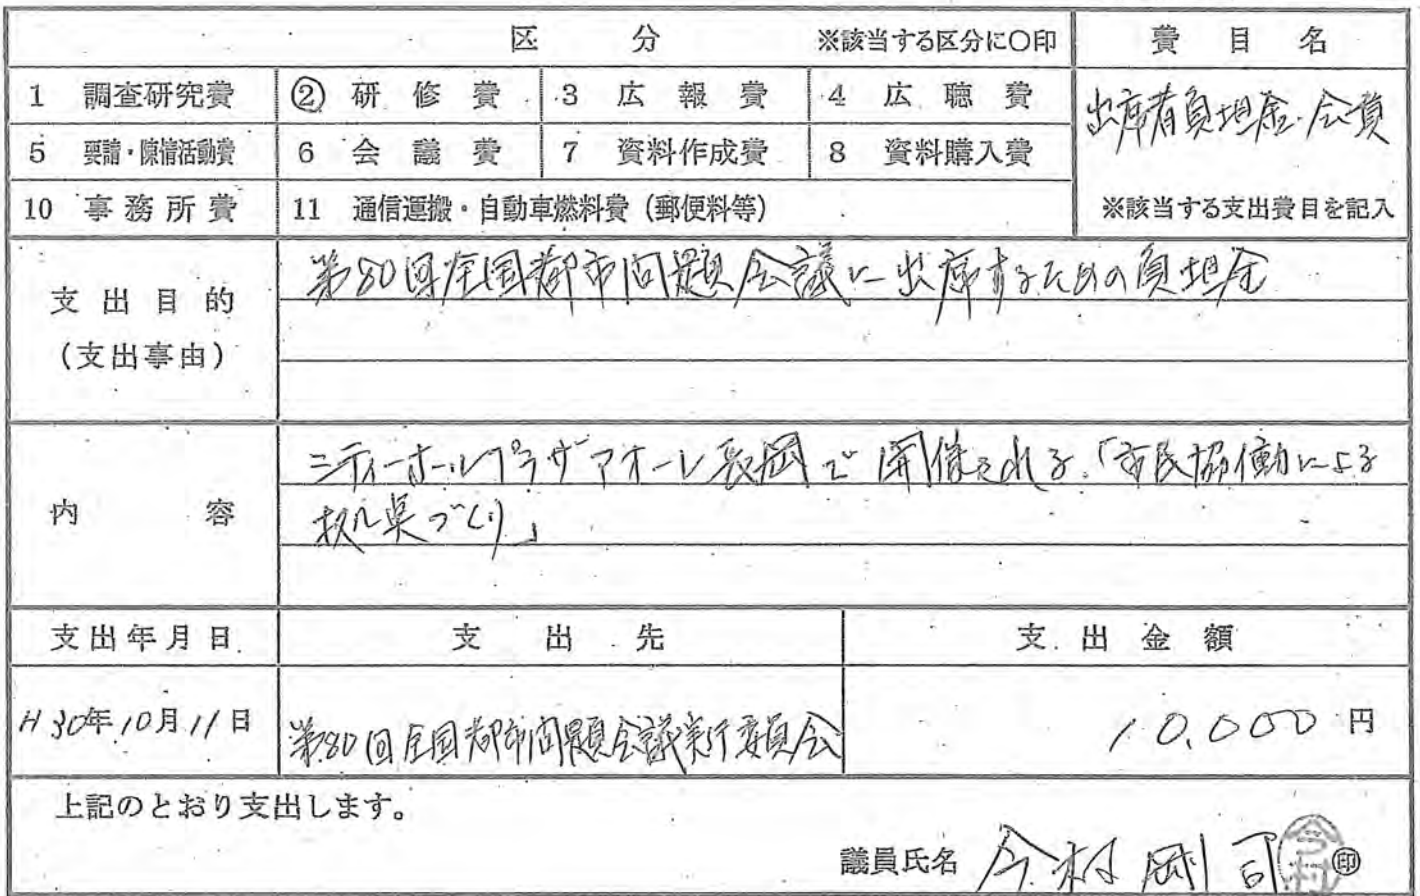 区　分　※該当する区分に○印　費目名
1 調査研究費　② 研修費　3 広報費　4 広聴費　出席者負担金・会費
5 要請・陳情活動費　6 会議費　7 資料作成費　8 資料購入費
10 事務所費　11 通信運搬・自動車燃料費（郵便料等）　※該当する支出費目を記入
支出目的
（支出事由）
第80回全国都市問題会議に出席するための負担金
内容
シティーホールプラザアオーレ長岡で開催される、「市民協働による
拠点づくり」
支出年月日　支出先　支出金額
H30年10月11日　第80回全国都市問題会議実行委員会　10,000円
上記のとおり支出します。
議員氏名　今村剛司　㊞
今村